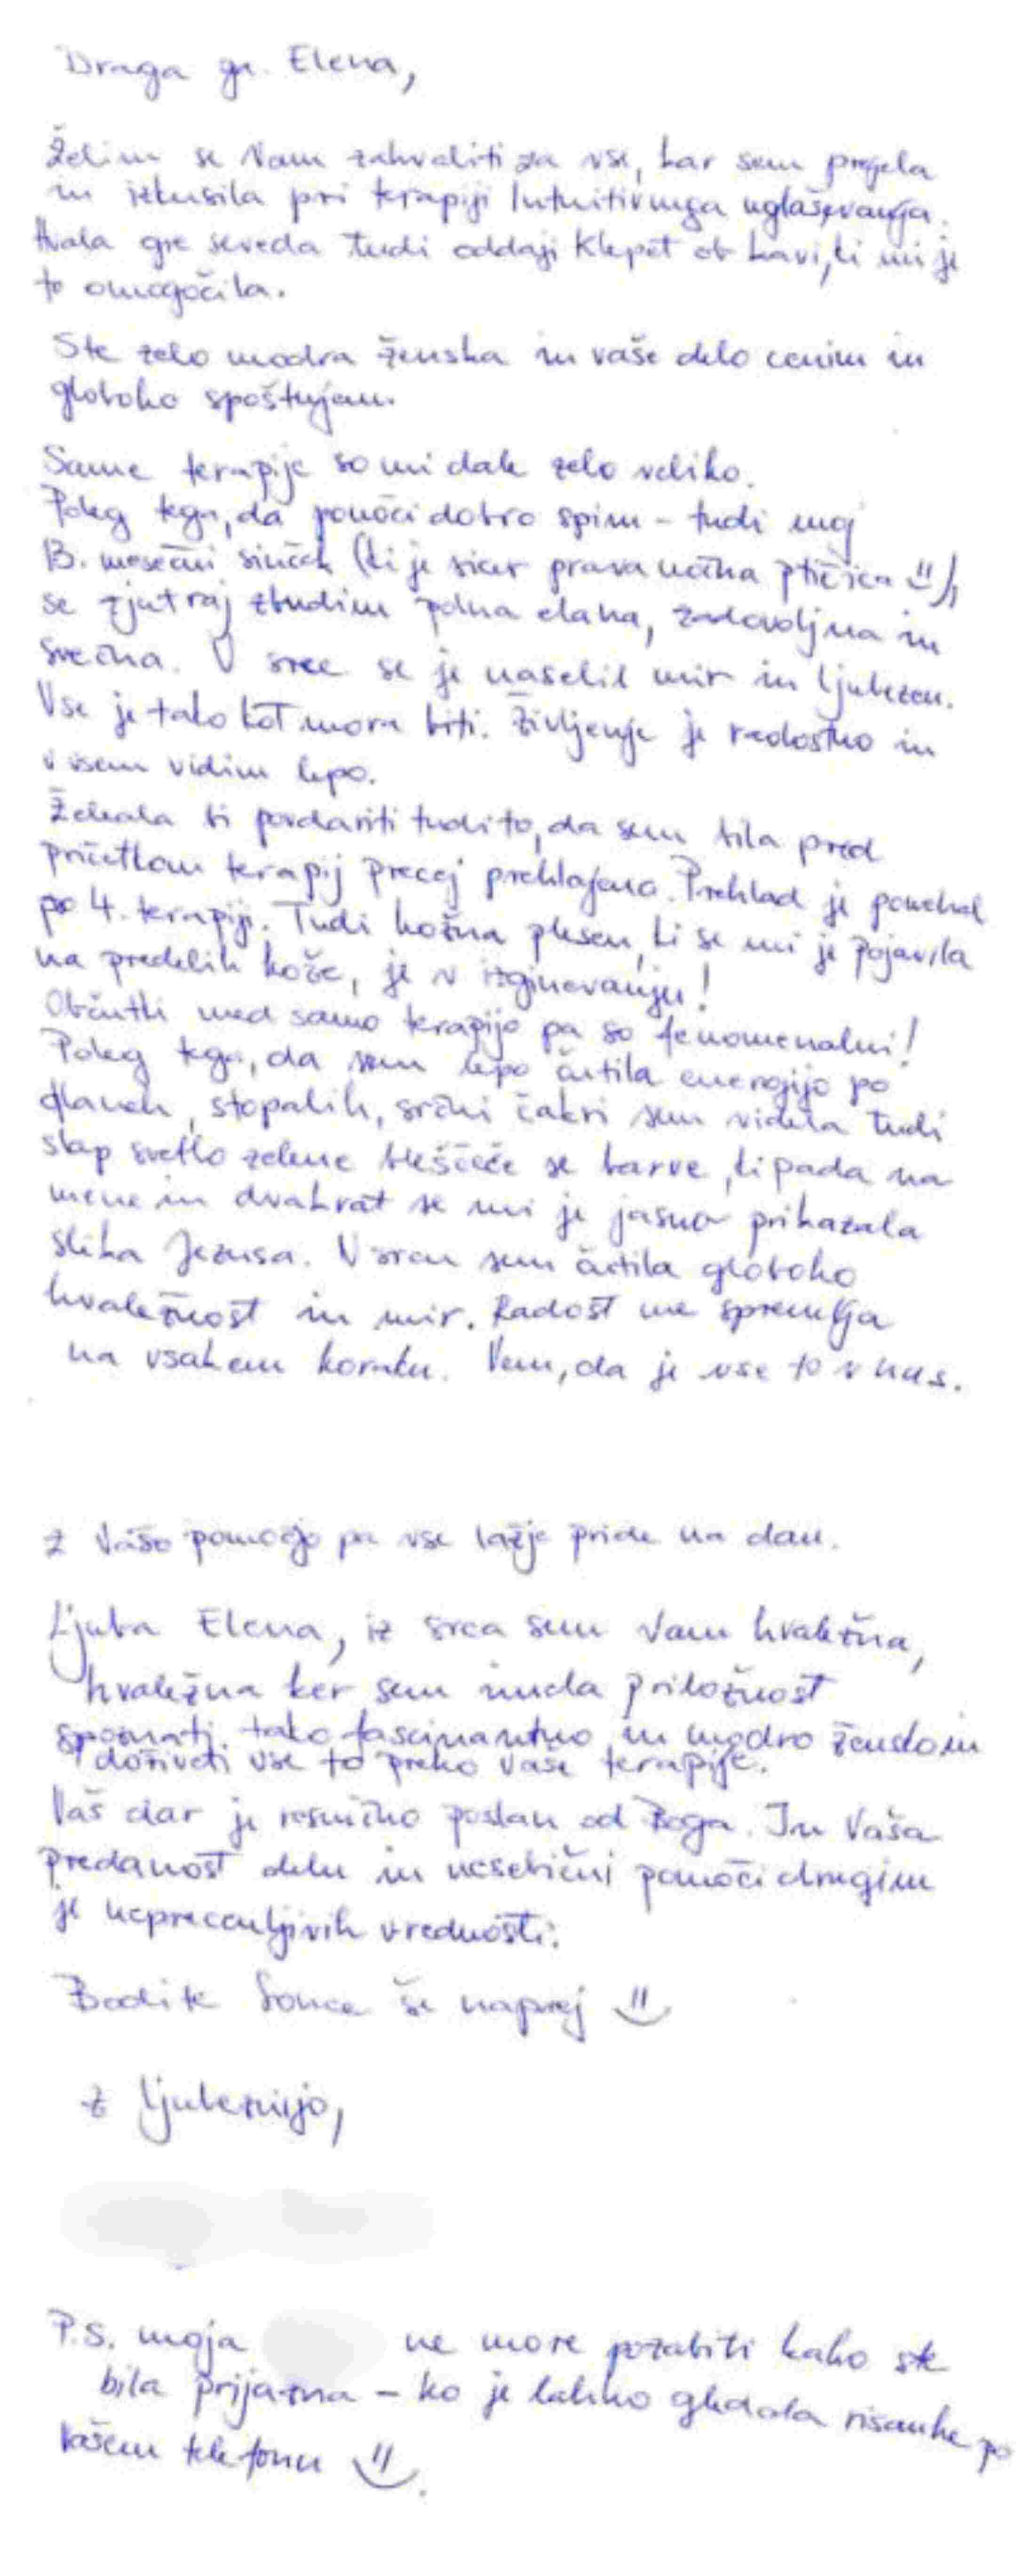 Draga ga. Elena,
Želim se Vam zahvaliti za vse, kar sem prejela
in izkusila pri terapiji Intuitivnega uglaševanja.
Hvala gre seveda tudi oddaji Klepet ob kavi, ki mi je
to omogočila.
Ste zelo modra ženska in vaše delo cenim in
globoko spoštujem.
Same terapije so mi dale zelo veliko.
Poleg tega, da ponoči dobro spim - tudi moj
13. mesečni sinček (ki je sicer prava nočna ptičica =)),
se zjutraj zbudim polna elana, zadovoljna in
srečna. V srce se je naselil mir in ljubezen.
Vse je tako kot mora biti. Življenje je radostno in
v vsem vidim lepo.
Želela bi povdariti tudi to, da sem bila pred
pričetkom terapij precej prehlajena. Prehlad je ponehal
po 4. terapiji. Tudi kožna plesen, ki se mi je pojavila
na predelih kože, je v izginevanju!
Občutki med samo terapijo pa so fenomenalni!
Poleg tega, da sem lepo čutila energijo po
dlaneh, stopalih, srčni čakri sem videla tudi
slap svetlo zelene bleščeče se barve, ki pada na
mene in dvakrat se mi je jasno prikazala
slika Jezusa. V srcu sem čutila globoko
hvaležnost in mir. Radost me spremlja
na vsakem koraku. Vem, da je vse to v nas.
z Vašo pomočjo pa vse lažje pride na dan.
Ljuba Elena, iz srca sem Vam hvaležna,
hvaležna ker sem imela priložnost
spoznati tako fascinantno in modro žensko in
doživeti vse to preko vaše terapije.
Vaš dar je resnično poslan od Boga. In Vaša
predanost delu in nesebični pomoči drugim
je neprecenljivih vrednosti.
Bodite Sonce še naprej =)
z ljubeznijo,
P.S. moja ne more pozabiti kako ste
bila prijazna - ko je lahko gledala risanke po
Vašem telefonu =).